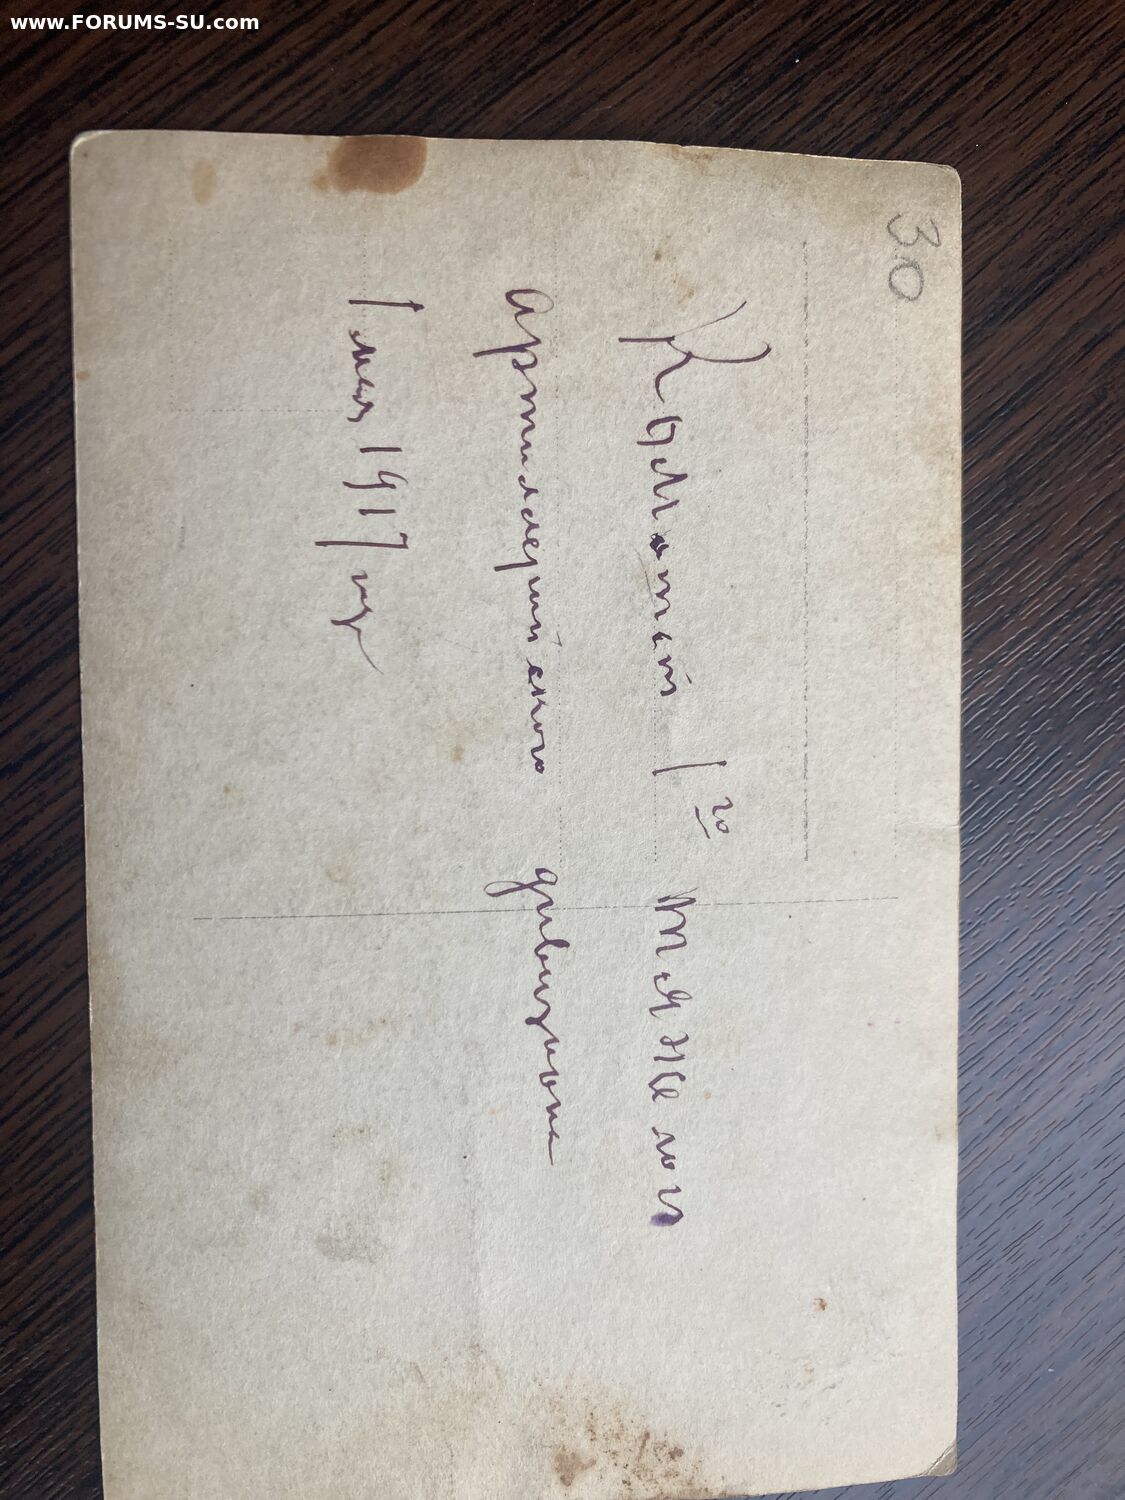 www.FORUMS-SU.com
30
Комитет 1го тяжелой
артиллерийского дивизиона
1 мая 1917 г